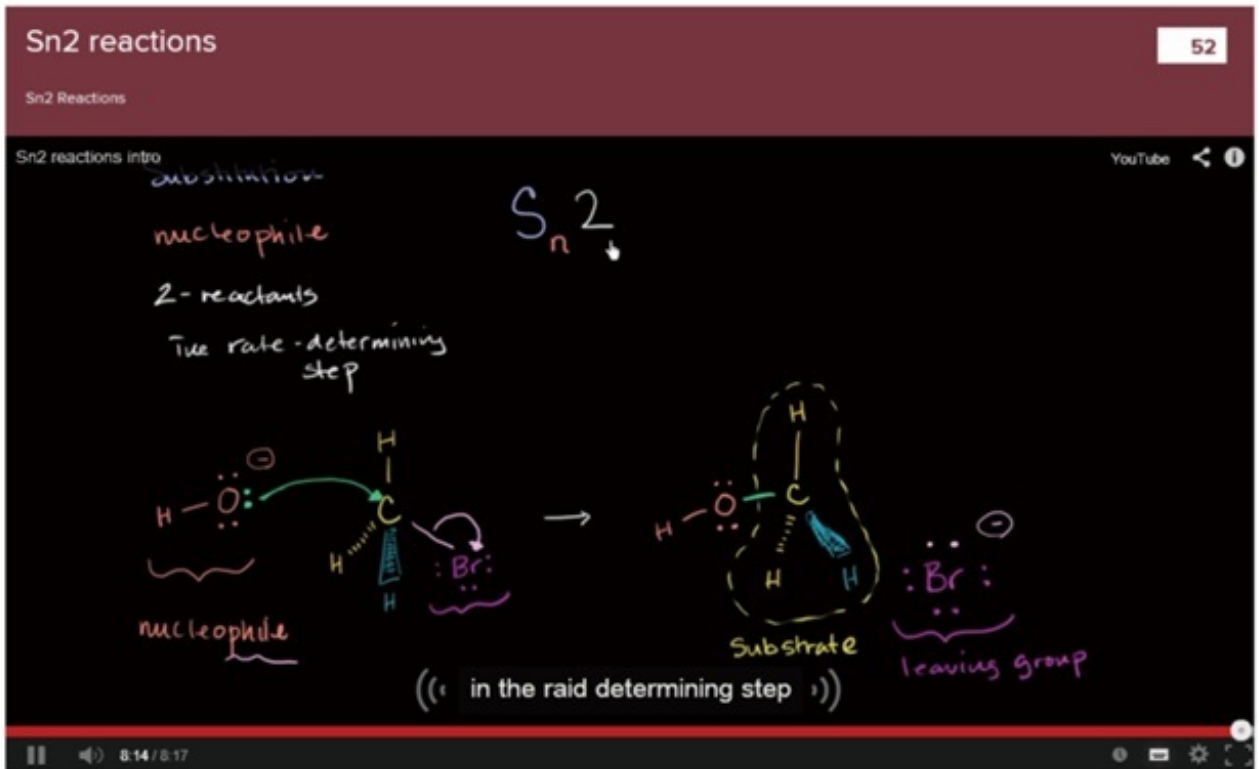 Sn2 reactions
52
Sn2 Reactions
Sn2 reactions intro
YouTube
Substitution
Sn2
nucleophile
2-reactants
rate-determining
step
H
H O : -
C
H
H
: Br :
→
H
H O C
H
H
: Br : -
nucleophile
Substrate
leaving group
in the raid determining step
8:14 / 8:17